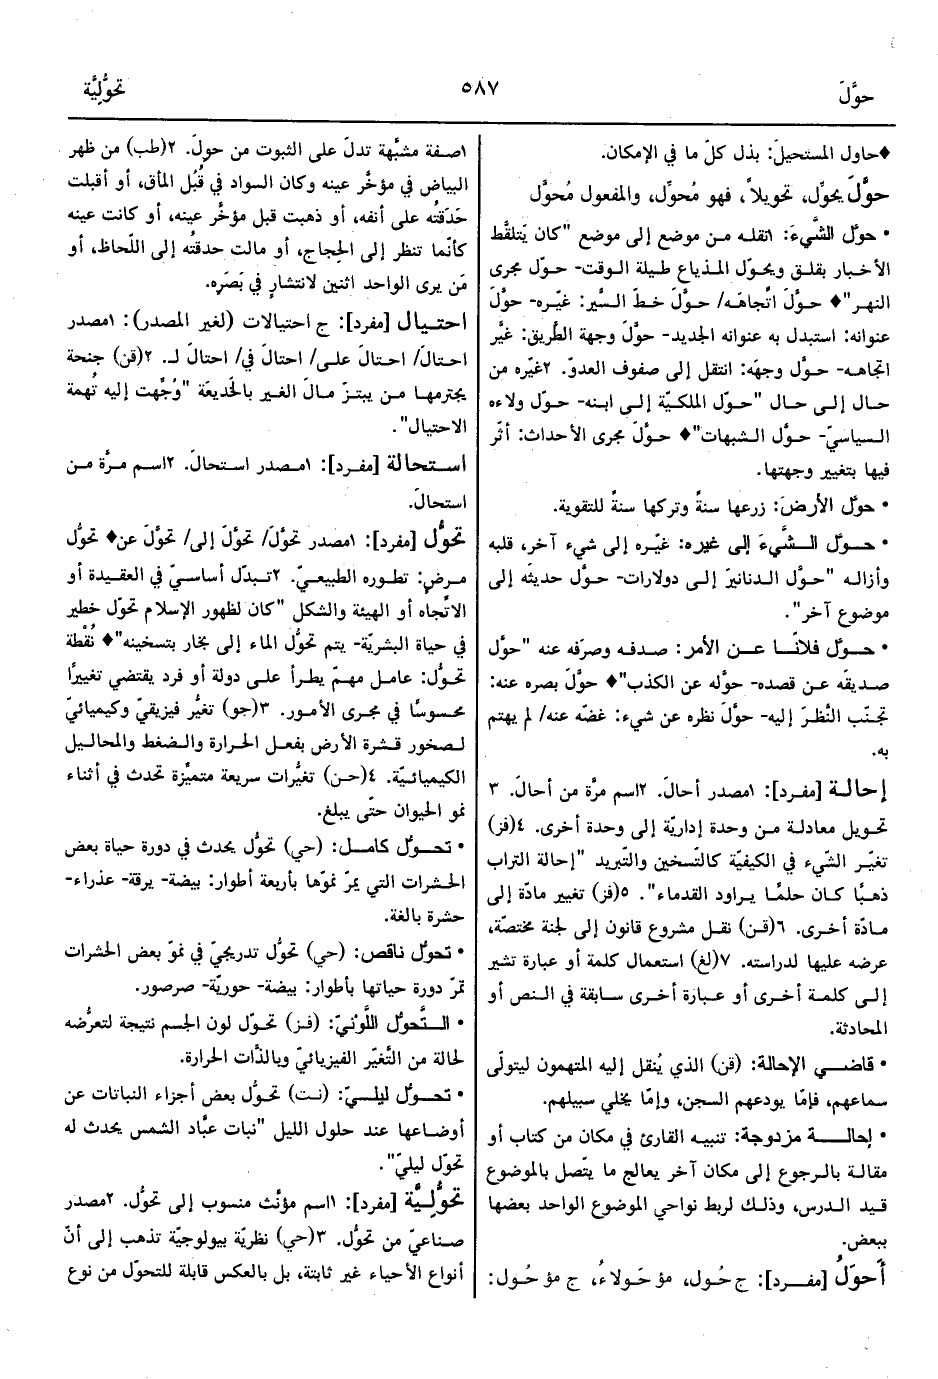 حوَّلَ
٥٨٧
تحوُّليَّة
♦حاول المستحيلَ: بذل كلّ ما في الإمكان.
حوَّلَ يحوِّل، تحويلاً، فهو مُحوِّل، والمفعول مُحوَّل
• حوّل الشَّيءَ: ١نقله من موضع إلى موضع "كان يَتلقَّط
الأخبار بقلق ويحوّل المذياع طيلة الوقت- حوّل مجرى
النهر"♦ حوَّلَ اتِّجاهَه/ حوَّلَ خطّ السَّير: غيّره- حوَّلَ
عنوانه: استبدل به عنوانه الجديد- حوَّلَ وجهة الطَّريق: غيَّر
اتجاهه- حوَّل وجهَه: انتقل إلى صفوف العدوّ. ٢غيّره من
حال إلى حال "حوّل الملكيّة إلى ابنه- حوّل ولاءه
السياسيّ- حوَّل الشبهات"♦ حوَّلَ مجرى الأحداث: أثّر
فيها بتغيير وجهتها.
• حوّل الأرضَ: زرعها سنةً وتركها سنةً للتقوية.
• حوّل الشَّيءَ إلى غيره: غيّره إلى شيء آخر، قلبه
وأزاله "حوَّل الدنانيرَ إلى دولارات- حوّل حديثَه إلى
موضوع آخر".
• حوّل فلانًا عن الأمر: صدفه وصرَفه عنه "حوّل
صديقَه عن قصده- حوَّله عن الكذب"♦ حوَّلَ بصره عنه:
تجنّب النَّظرَ إليه- حوَّلَ نظره عن شيء: غضّه عنه/ لم يهتم
به.
إحالة [مفرد]: ١مصدر أحالَ. ٢اسم مرَّة من أحالَ. ٣
تحويل معادلة من وحدة إداريّة إلى وحدة أخرى. ٤(فز)
تغيّر الشّيء في الكيفيّة كالتَّسخين والتَّبريد "إحالة التراب
ذهبًا كان حلمًا يراود القدماء". ٥(فز) تغيير مادّة إلى
مادّة أخرى. ٦(قن) نقل مشروع قانون إلى لجنة مختصّة،
عرضه عليها لدراسته. ٧(لغ) استعمال كلمة أو عبارة تشير
إلى كلمة أخرى أو عبارة أخرى سابقة في النص أو
المحادثة.
• قاضي الإحالة: (قن) الذي يُنقل إليه المتهمون ليتولّى
سماعهم، فإمّا يودعهم السجن، وإمّا يخلي سبيلهم.
• إحالة مزدوجة: تنبيه القارئ في مكان من كتاب أو
مقالة بالرجوع إلى مكان آخر يعالج ما يتّصل بالموضوع
قيد الدرس، وذلك لربط نواحي الموضوع الواحد بعضها
ببعض.
أحوَلُ [مفرد]: ج حُول، مؤ حَولاءُ، ج مؤ حُول:
١صفة مشبَّهة تدلّ على الثبوت من حولَ. ٢(طب) من ظهر
البياض في مؤخَّر عينه وكان السواد في قُبُل المأق، أو أقبلت
حَدَقتُه على أنفه، أو ذهبت قبل مؤخّر عينه، أو كانت عينه
كأنّما تنظر إلى الحِجاج، أو مالت حدقتُه إلى اللّحاظ، أو
مَن يرى الواحد اثنين لانتشارٍ في بَصَره.
احتيال [مفرد]: ج احتيالات (لغير المصدر): ١مصدر
احتالَ/ احتالَ على/ احتالَ في/ احتالَ لـ. ٢(قن) جنحة
يجترمها من يبتزّ مالَ الغير بالخديعَة "وُجِّهت إليه تُهمة
الاحتيال".
استحالة [مفرد]: ١مصدر استحالَ. ٢اسم مرَّة من
استحالَ.
تحوُّل [مفرد]: ١مصدر تحوَّلَ/ تحوَّلَ إلى/ تحوَّلَ عن♦ تحوُّل
مرضٍ: تطوره الطبيعيّ. ٢تبدّل أساسيّ في العقيدة أو
الاتِّجاه أو الهيئة والشكل "كان لظهور الإسلام تحوّل خطير
في حياة البشريّة- يتم تحوُّل الماء إلى بخار بتسخينه"♦ نُقْطة
تحوُّل: عامل مهمّ يطرأ على دولة أو فرد يقتضي تغييرًا
محسوسًا في مجرى الأمور. ٣(جو) تغيُّر فيزيقيّ وكيميائيّ
لصخور قشرة الأرض بفعل الحرارة والضغط والمحاليل
الكيميائيّة. ٤(حن) تغيُّرات سريعة متميَّزة تحدث في أثناء
نمو الحيوان حتّى يبلغ.
• تحوّل كامل: (حي) تحوُّل يحدث في دورة حياة بعض
الحشرات التي يمرّ نموّها بأربعة أطوار: بيضة- يرقة- عذراء-
حشرة بالغة.
• تحوّل ناقص: (حي) تحوُّل تدريجيّ في نموّ بعض الحشرات
تمرّ دورة حياتها بأطوار: بيضة- حوريّة- صرصور.
• التَّحوُّل اللَّونيّ: (فز) تحوّل لون الجسم نتيجة لتعرُّضه
لحالة من التَّغيّر الفيزيائيّ وبالذَّات الحرارة.
• تحوّل ليليّ: (نت) تحوُّل بعض أجزاء النباتات عن
أوضاعها عند حلول الليل "نبات عبَّاد الشمس يحدث له
تحوّل ليليّ".
تحوُّليَّة [مفرد]: ١اسم مؤنَّث منسوب إلى تحوُّل. ٢مصدر
صناعيّ من تحوُّل. ٣(حي) نظريّة بيولوجيَّة تذهب إلى أنّ
أنواع الأحياء غير ثابتة، بل بالعكس قابلة للتحوّل من نوع